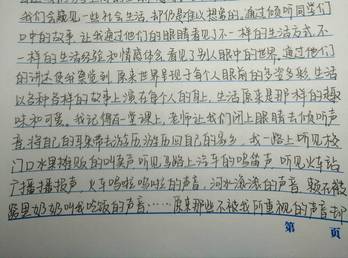 我们会窥见一些社会生活,却仍是难以想象的。通过倾听同学们
口中的故事,让我通过他们的眼睛看见了不一样的生活方式,不
一样的生活经验和情感体会,看见了别人眼中的世界。通过他们
的讲述使我感觉到原来世界呈现于每个人眼前的多姿多彩,生活
以各种各样的故事上演在每个人的身上,生活原来是那样的趣
味和可爱。我记得在一堂课上,老师让我们闭上眼睛去倾听声
音,将自己的耳朵带去游历,游历回自己的家乡,我一路上听见校
门口水果摊贩的叫卖声,听见马路上汽车的鸣笛声,听见火车站
广播播报声,火车呜啦呜啦的声音,河水滚滚的声音,躺在被
窝里奶奶叫我吃饭的声音……原来那些不被我所重视的声音却
第 页